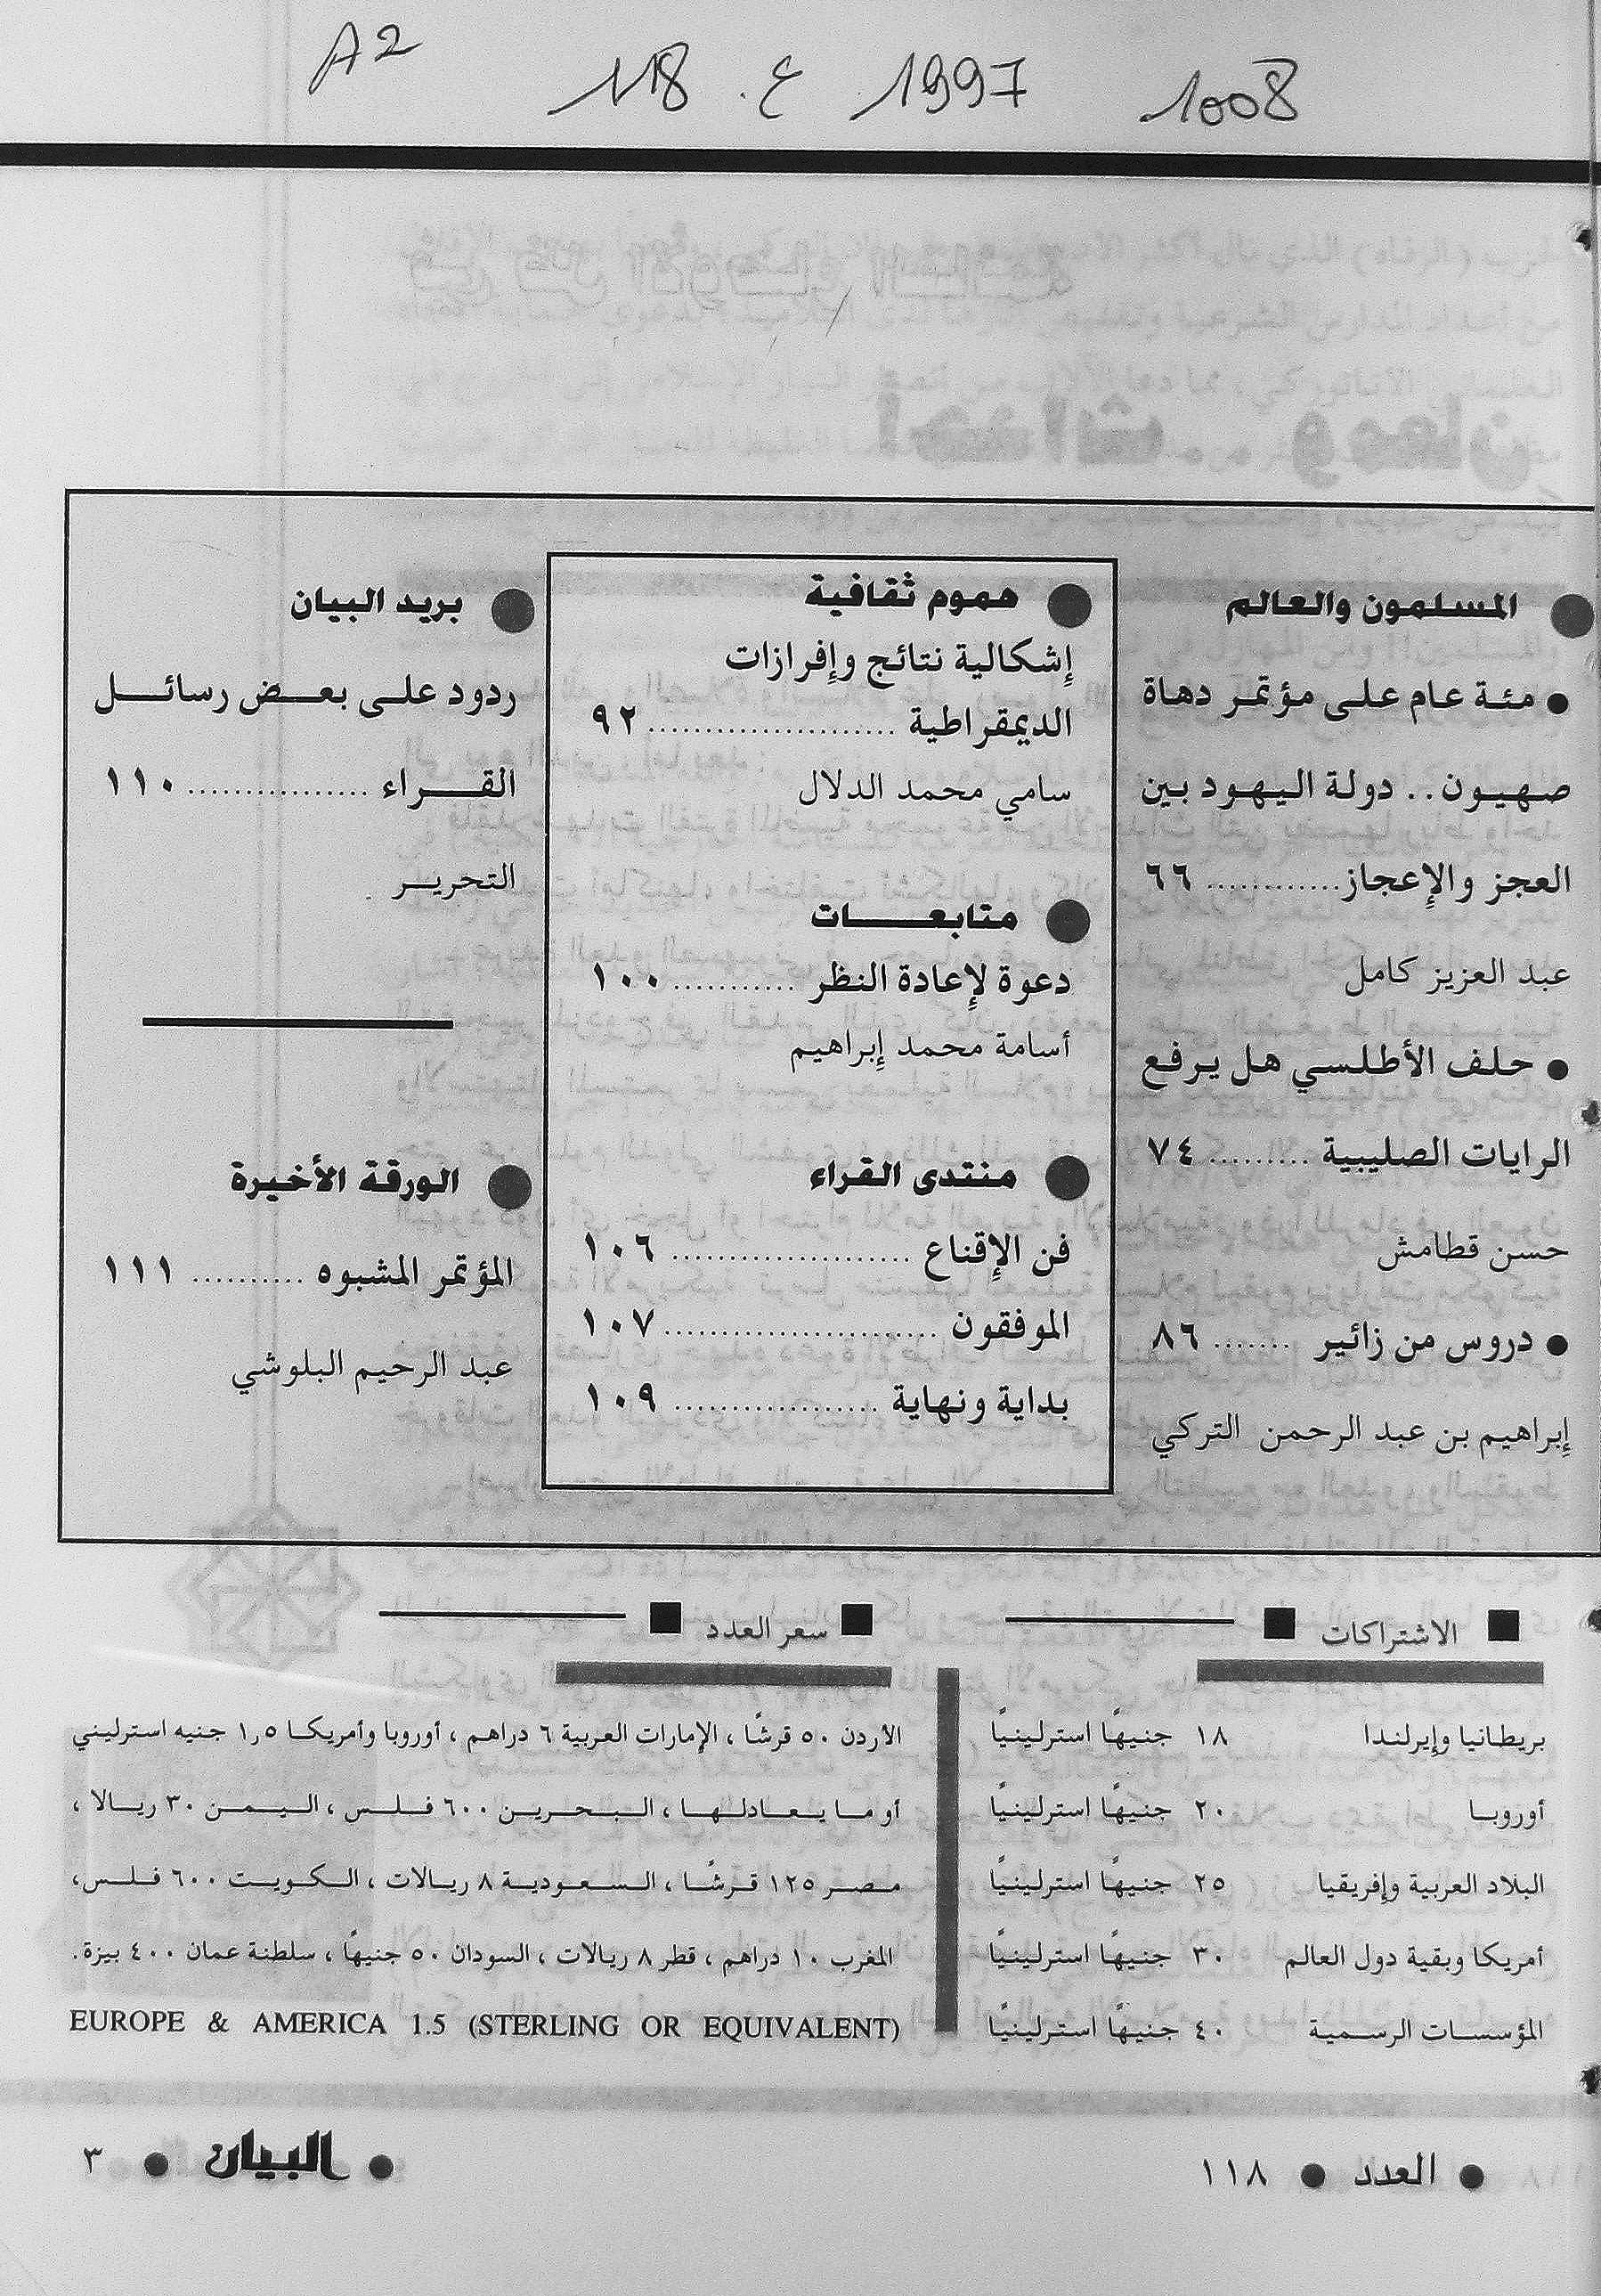 A2 118 ع. 1997 1008
المسلمون والعالم
• مئة عام على مؤتمر دهاة
صهيون.. دولة اليهود بين
العجز والإعجاز ............ ٦٦
عبد العزيز كامل
• حلف الأطلسي هل يرفع
الرايات الصليبية ......... ٧٤
حسن قطامش
• دروس من زائير ....... ٨٦
إبراهيم بن عبد الرحمن التركي
هموم ثقافية
إشكالية نتائج وإفرازات
الديمقراطية ...................... ٩٢
سامي محمد الدلال
متابعات
دعوة لإعادة النظر ........... ١٠٠
أسامة محمد إبراهيم
منتدى القراء
فن الإقناع ..................... ١٠٦
الموفقون ........................ ١٠٧
بداية ونهاية .................. ١٠٩
بريد البيان
ردود على بعض رسائل
القراء ................ ١١٠
التحرير
الورقة الأخيرة
المؤتمر المشبوه .......... ١١١
عبد الرحيم البلوشي
الاشتراكات
بريطانيا وإيرلندا ١٨ جنيهًا استرلينيًا
أوروبا ٢٠ جنيهًا استرلينيًا
البلاد العربية وإفريقيا ٢٥ جنيهًا استرلينيًا
أمريكا وبقية دول العالم ٣٠ جنيهًا استرلينيًا
المؤسسات الرسمية ٤٠ جنيهًا استرلينيًا
سعر العدد
الأردن ٥٠ قرشًا ، الإمارات العربية ٦ دراهم ، أوروبا وأمريكا ١,٥ جنيه استرليني
أو ما يعادلها ، البحرين ٦٠٠ فلس ، اليمن ٣٠ ريالا ،
مصر ١٢٥ قرشًا ، السعودية ٨ ريالات ، الكويت ٦٠٠ فلس،
المغرب ١٠ دراهم ، قطر ٨ ريالات ، السودان ٥٠ جنيهًا ، سلطنة عمان ٤٠٠ بيزة.
EUROPE & AMERICA 1.5 (STERLING OR EQUIVALENT)
• العدد • ١١٨
• البيان • ٣